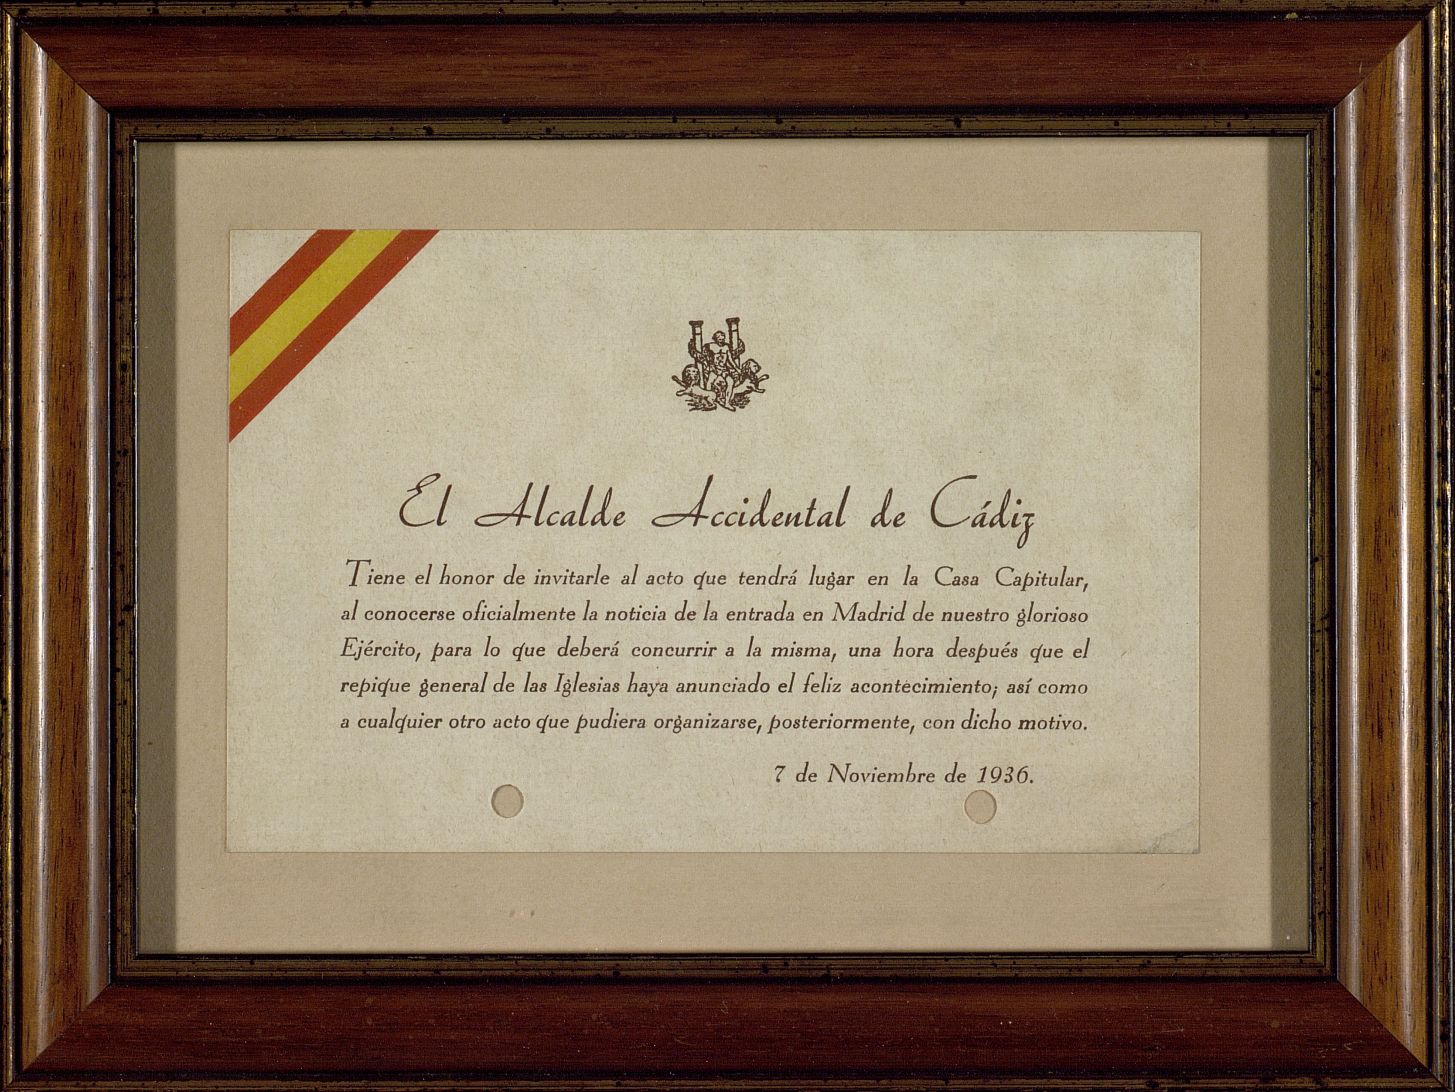 El Alcalde Accidental de Cádiz
Tiene el honor de invitarle al acto que tendrá lugar en la Casa Capitular,
al conocerse oficialmente la noticia de la entrada en Madrid de nuestro glorioso
Ejército, para lo que deberá concurrir a la misma, una hora después que el
repique general de las Iglesias haya anunciado el feliz acontecimiento; así como
a cualquier otro acto que pudiera organizarse, posteriormente, con dicho motivo.
7 de Noviembre de 1936.